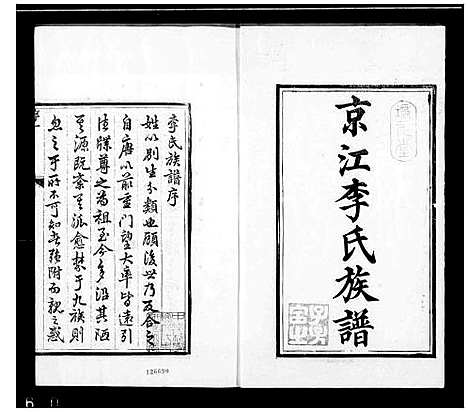 京江李氏族譜
李氏族譜序
姓以別生分類也顧後世乃反合之
自唐以前重門望大率皆遠引
往牒尊之為祖至今多沿其陋
其源既紊其派愈棼于九族則
忽之于所不可知者強附而親之惑
126690